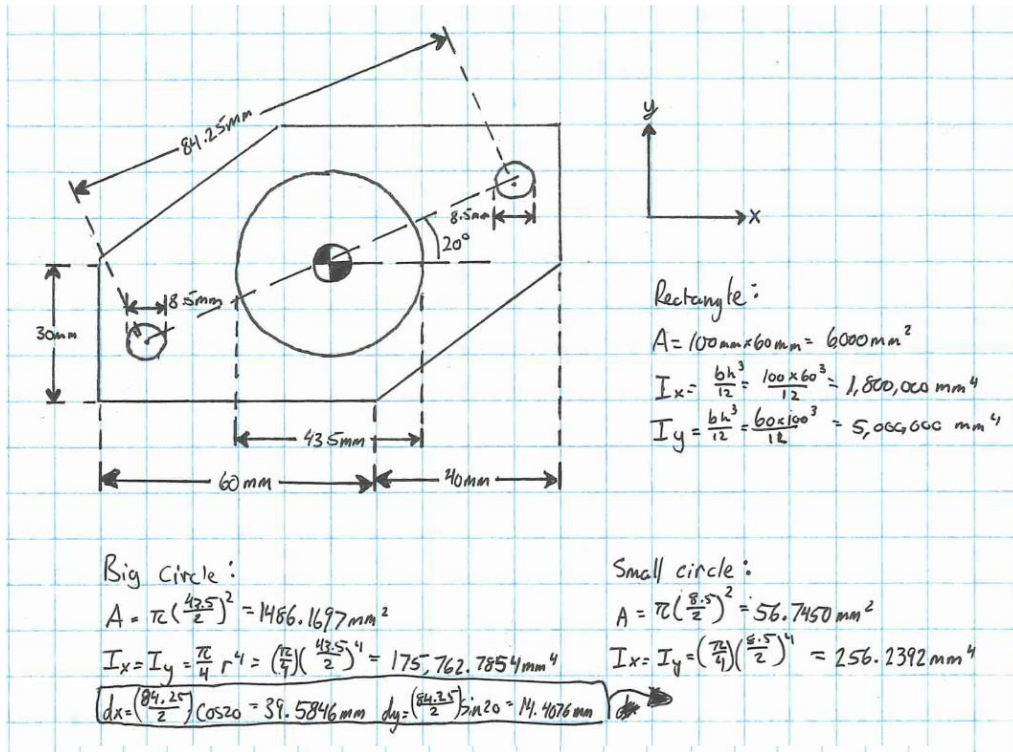 84.25mm
y
x
8.5mm
20°
8.5mm
30mm
43.5mm
60mm
40mm
Rectangle:
A = 100mm×60mm = 6000mm²
Ix = bh³/12 = 100×60³/12 = 1,800,000 mm⁴
Iy = bh³/12 = 60×100³/12 = 5,000,000 mm⁴
Big Circle:
A = π(43.5/2)² = 1486.1697mm²
Ix = Iy = π/4 r⁴ = (π/4)(43.5/2)⁴ = 175,762.7854mm⁴
dx = (84.25/2)cos20 = 39.5846mm dy = (84.25/2)sin20 = 14.4076mm
Small circle:
A = π(8.5/2)² = 56.7450mm²
Ix = Iy = (π/4)(8.5/2)⁴ = 256.2392mm⁴